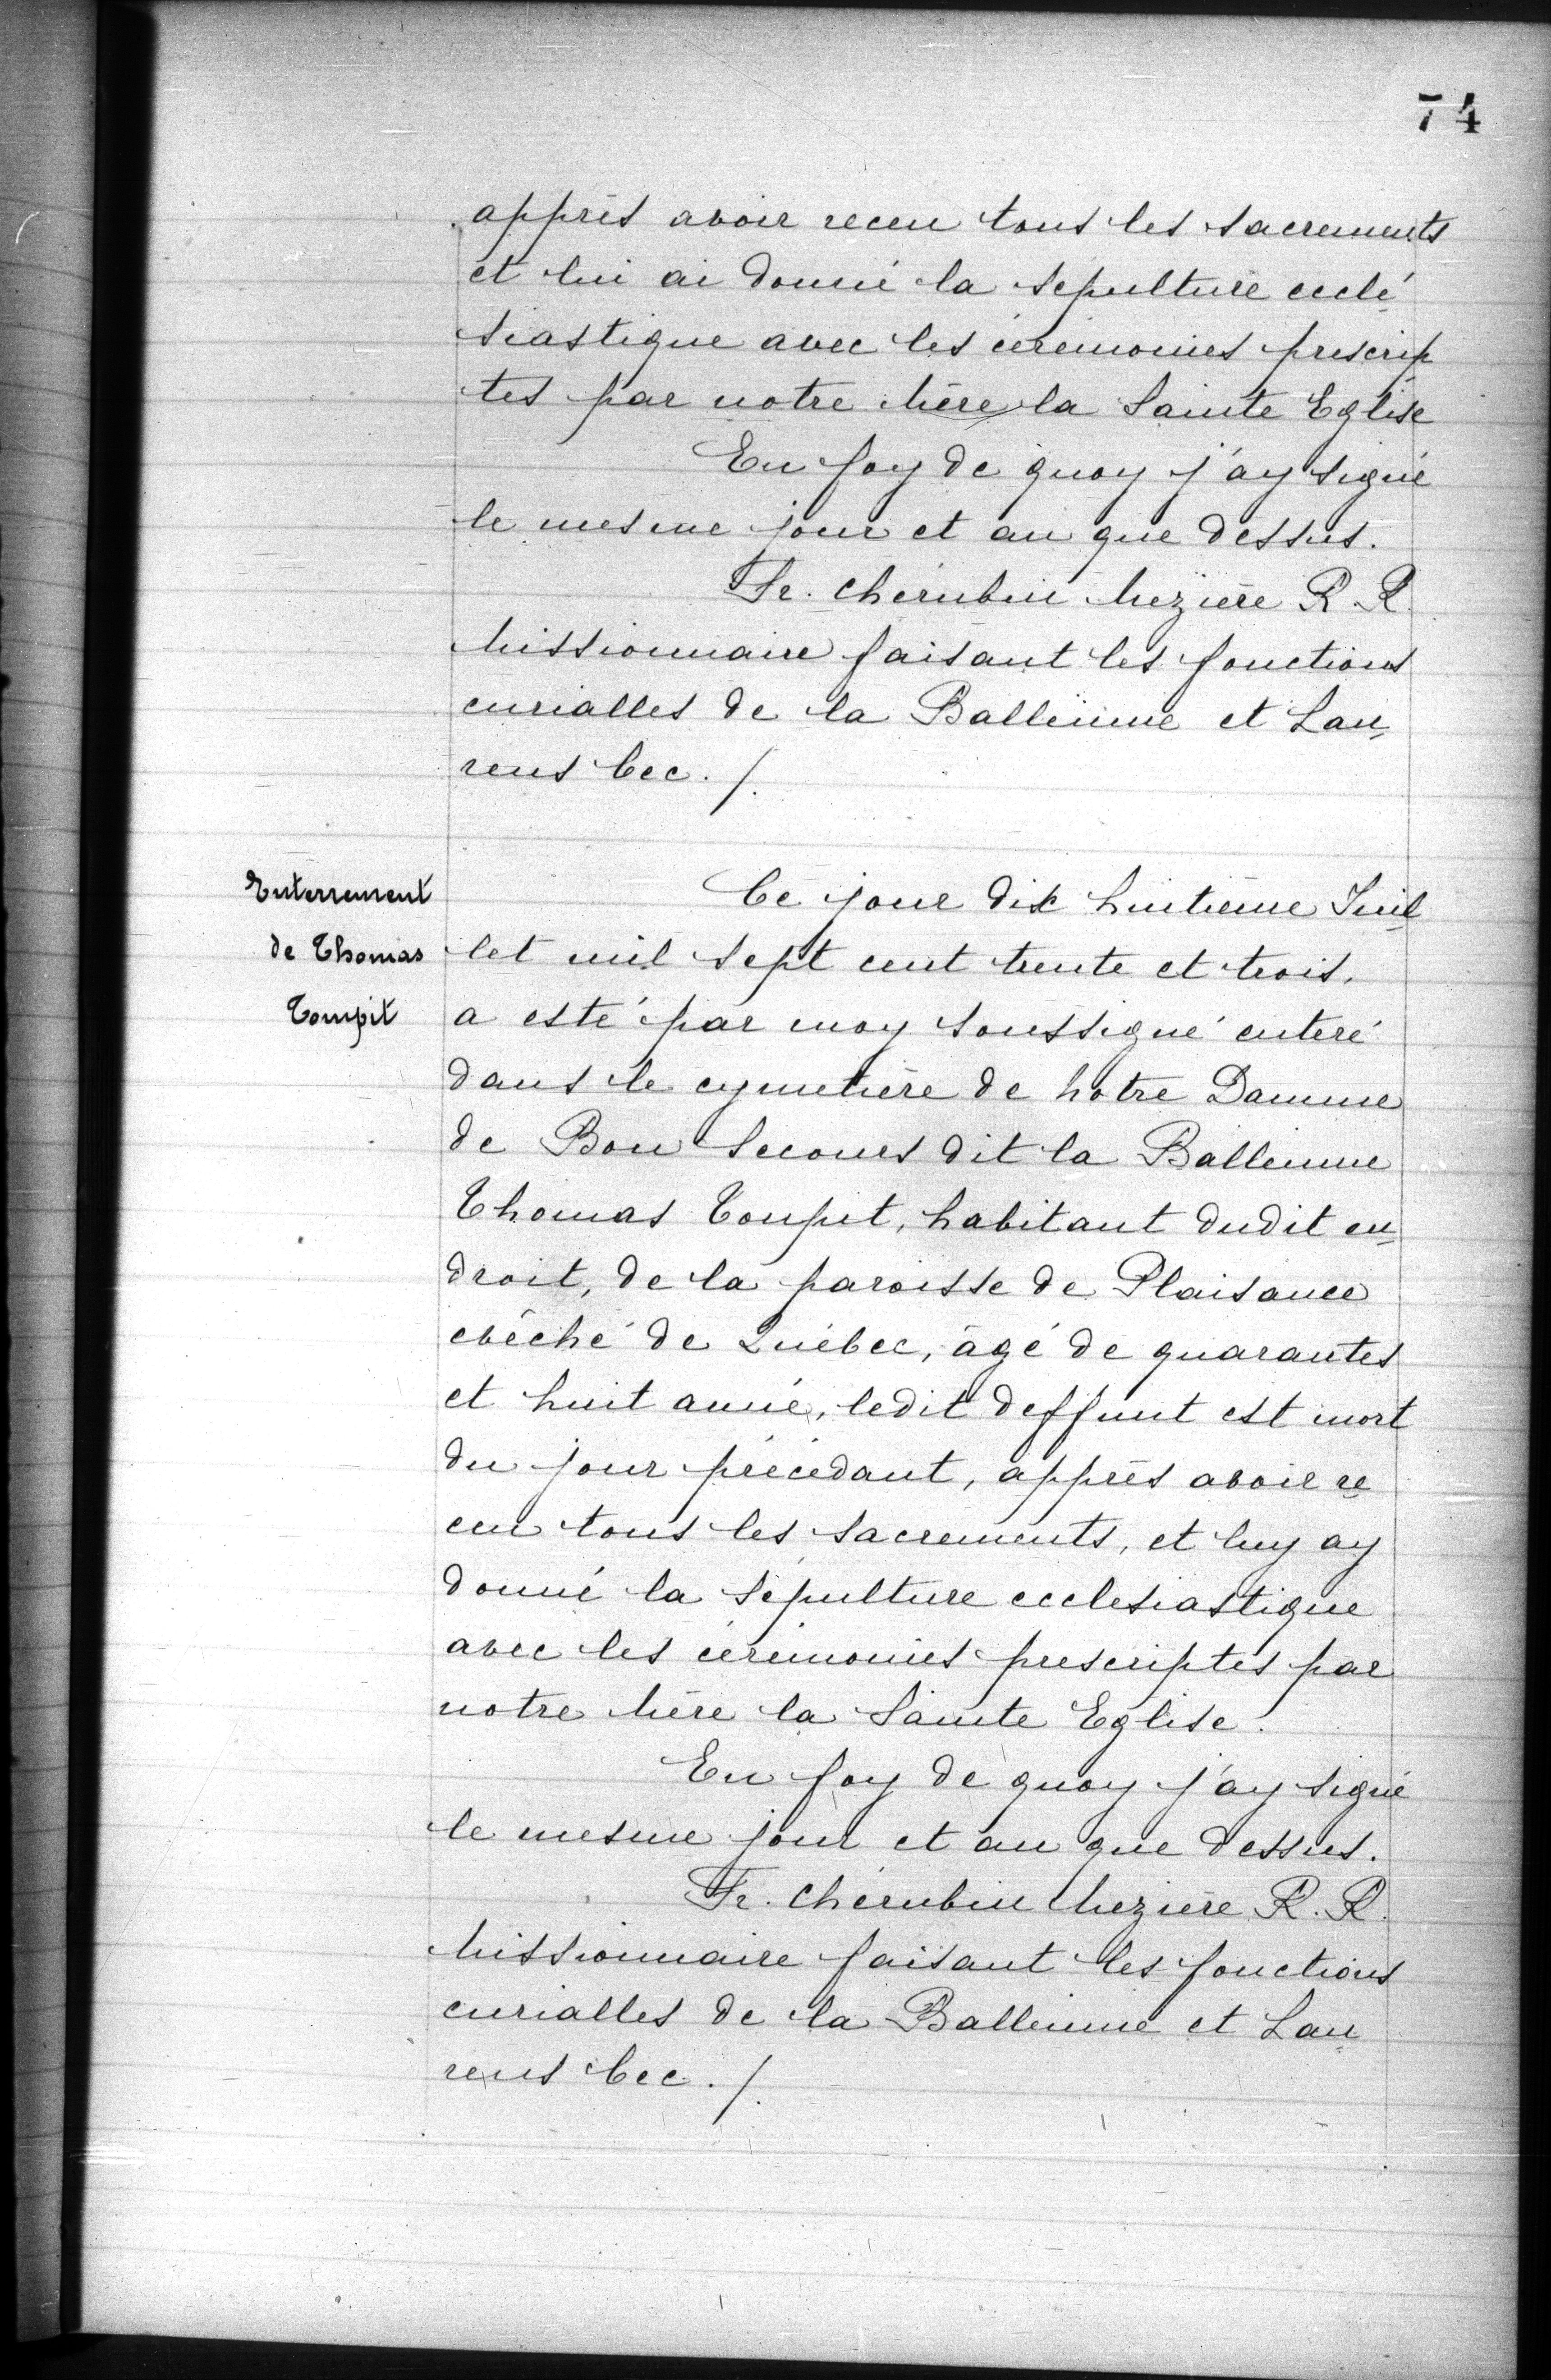 74
apprès avoir receu tous les sacrements
et lui ai donné la sépulture ecclé
siastique avec les cérémonies prescrip
tes par notre Mère la Sainte Eglise
En foy de quoy j'ay signé
le mesme jour et an que dessus.
Fr. Chérubin Mezière R. R.
Missionnaire faisant les fonctions
curialles de la Balleinne et Lau-
rens bec. /.
Enterrement
de Thomas
Toupit
Ce jour dix huitième Juil-
let mil sept cent trente et trois.
a esté par moy soussigné enteré
dans le cymetière de Notre Damme
de Bon Secours dit la Balleinne
Thomas Toupit, habitant dudit en-
droit, de la paroisse de Plaisance
evêché de Québec, âgé de quarantes
et huit année, ledit deffunt est mort
du jour précédant, apprès avoir re-
ceu tous les sacrements, et luy ay
donné la sépulture ecclesiastique
avec les cérémonies prescriptes par
notre Mère la Sainte Eglise.
En foy de quoy j'ay signé
le mesme jour et an que dessus.
Fr. Chérubin Mezière R. R.
Missionnaire faisant les fonctions
curialles de la Balleinne et Lau-
rens bec. /.